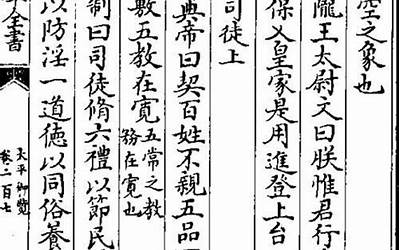 空之象也
隴王太尉文曰朕惟君行
保乂皇家是用進登上台
司徒上
典帝曰契百姓不親五品
敷五教在寛五常之教務在寛也
制曰司徒脩六禮以節民
以防淫一道徳以同俗養
全書
太平御覧
卷二百七